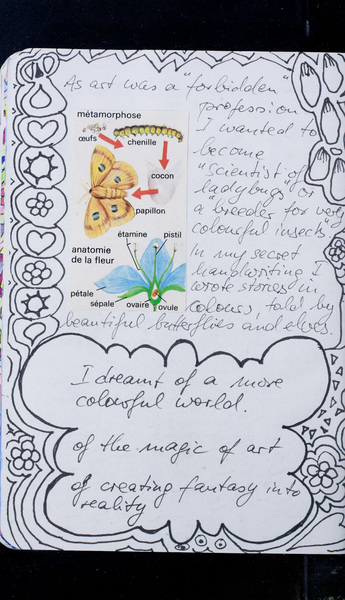 As art was a "forbidden"
profession
I wanted to
become
"scientist" of
ladybugs or
a "breeder" for very
colourful insects.
In my secret
handwriting I
wrote stories in
colours, told by
beautiful butterflies and elves.
métamorphose
œufs
chenille
cocon
papillon
étamine pistil
anatomie
de la fleur
pétale
sépale ovaire ovule
I dreamt of a more
colourful world.
of the magic of art
of creating fantasy into
reality